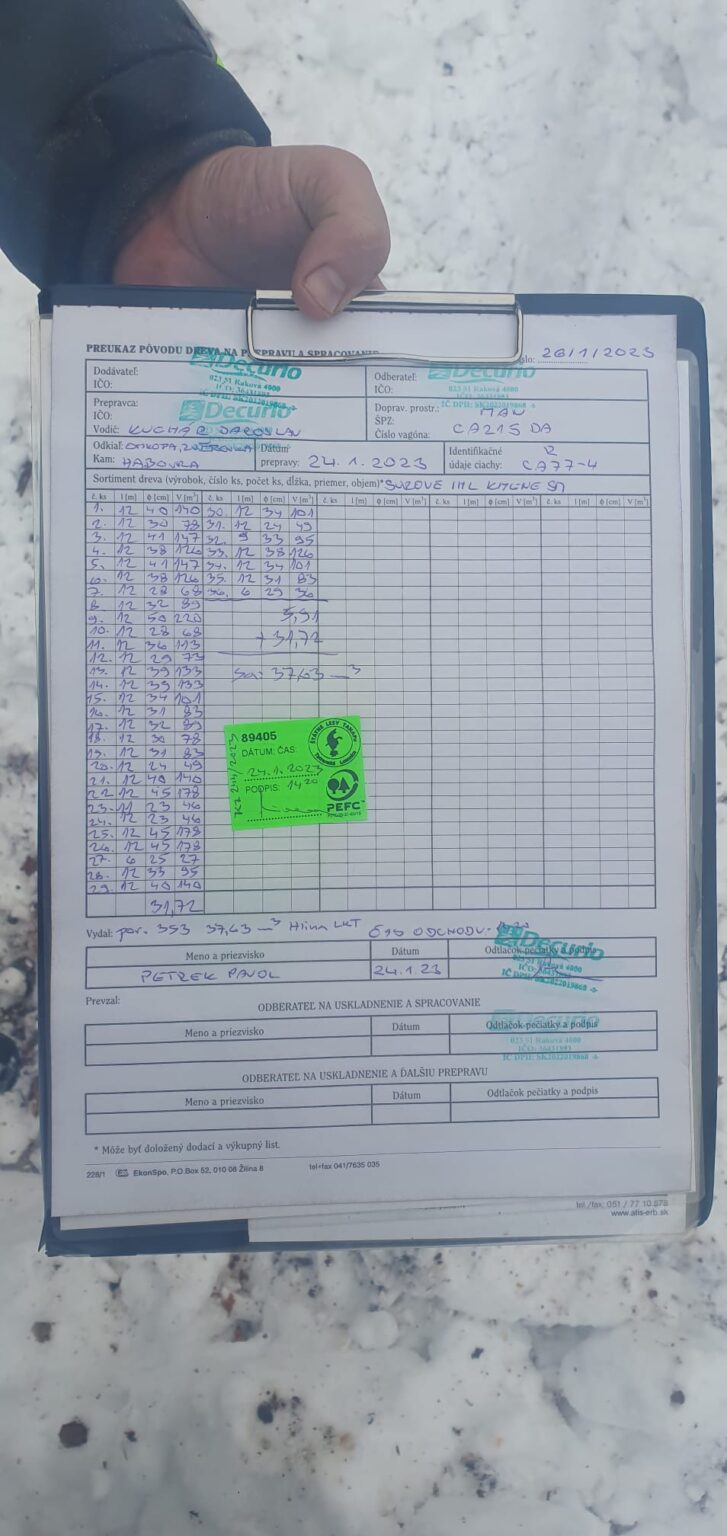 PREUKAZ PÔVODU DREVA NA PREPRAVU A SPRACOVANIE
číslo: 26/1/2023
Dodávateľ:
IČO:
Decurio
023 51 Raková 4000
Odberateľ:
IČO:
Decurio
023 51 Raková 4000
IČ DPH: SK2022019868
Prepravca:
IČO:
Decurio
Vodič: KUCHÁR JAROSLAV
Doprav. prostr.: MAN
ŠPZ:
Číslo vagóna: CA215 DA
Odkiaľ:
Kam: HABOVKA
Dátum
prepravy: 24.1.2023
Identifikačné
údaje ciachy: CA77-4
Sortiment dreva (výrobok, číslo ks, počet ks, dĺžka, priemer, objem)*
č. ks l [m] ϕ [cm] V [m³] č. ks l [m] ϕ [cm] V [m³] č. ks l [m] ϕ [cm] V [m³] č. ks l [m] ϕ [cm] V [m³] č. ks l [m] ϕ [cm] V [m³]
1. 12 40 140 30. 12 34 101
2. 12 30 78 31. 12 24 49
3. 12 41 147 32. 9 33 95
4. 12 38 126 33. 12 38 126
5. 12 41 147 34. 12 34 101
6. 12 38 126 35. 12 31 83
7. 12 28 68 36. 6 29 36
8. 12 32 89
9. 12 50 220 5,91
10. 12 28 68 + 31,72
11. 12 36 113
12. 12 29 73
13. 12 39 133 37,63 m³
14. 12 39 133
15. 12 34 101
16. 12 31 83
17. 12 32 89
18. 12 30 78
19. 12 31 83
20. 12 24 49
21. 12 40 140
22. 12 45 178
23. 11 23 46
24. 12 23 46
25. 12 45 178
26. 12 45 178
27. 6 25 27
28. 12 33 95
29. 12 40 140
31,72
89405
DÁTUM: ČAS:
24.1.2023
PODPIS: 14 20
ŠTÁTNE LESY TANAPU
PEFC
Vydal: por. 353 37,63 m³ Hlina LKT
Meno a priezvisko Dátum Odtlačok pečiatky a podpis
PETREK PAVOL 24.1.23
Decurio
IČ DPH: SK2022019868
Prevzal:
ODBERATEĽ NA USKLADNENIE A SPRACOVANIE
Meno a priezvisko Dátum Odtlačok pečiatky a podpis
023 51 Raková 4000
IČ DPH: SK2022019868
ODBERATEĽ NA USKLADNENIE A ĎALŠIU PREPRAVU
Meno a priezvisko Dátum Odtlačok pečiatky a podpis
* Môže byť doložený dodací a výkupný list.
228/1 EkonSpo, P.O.Box 52, 010 08 Žilina 8 tel+fax 041/7635 035
tel./fax: 051 / 77 10 878
www.atis-erb.sk